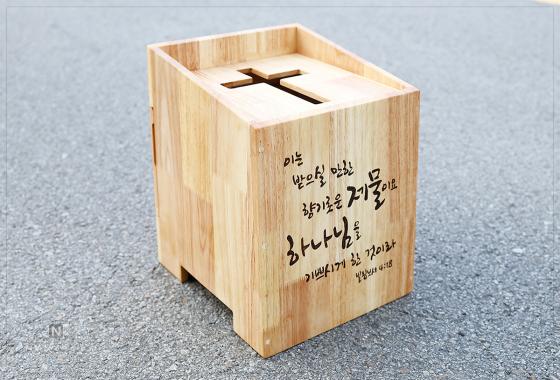 이는
받으실 만한
향기로운 제물이요
하나님을
기쁘시게 한 것이라
빌립보서 4:18
N